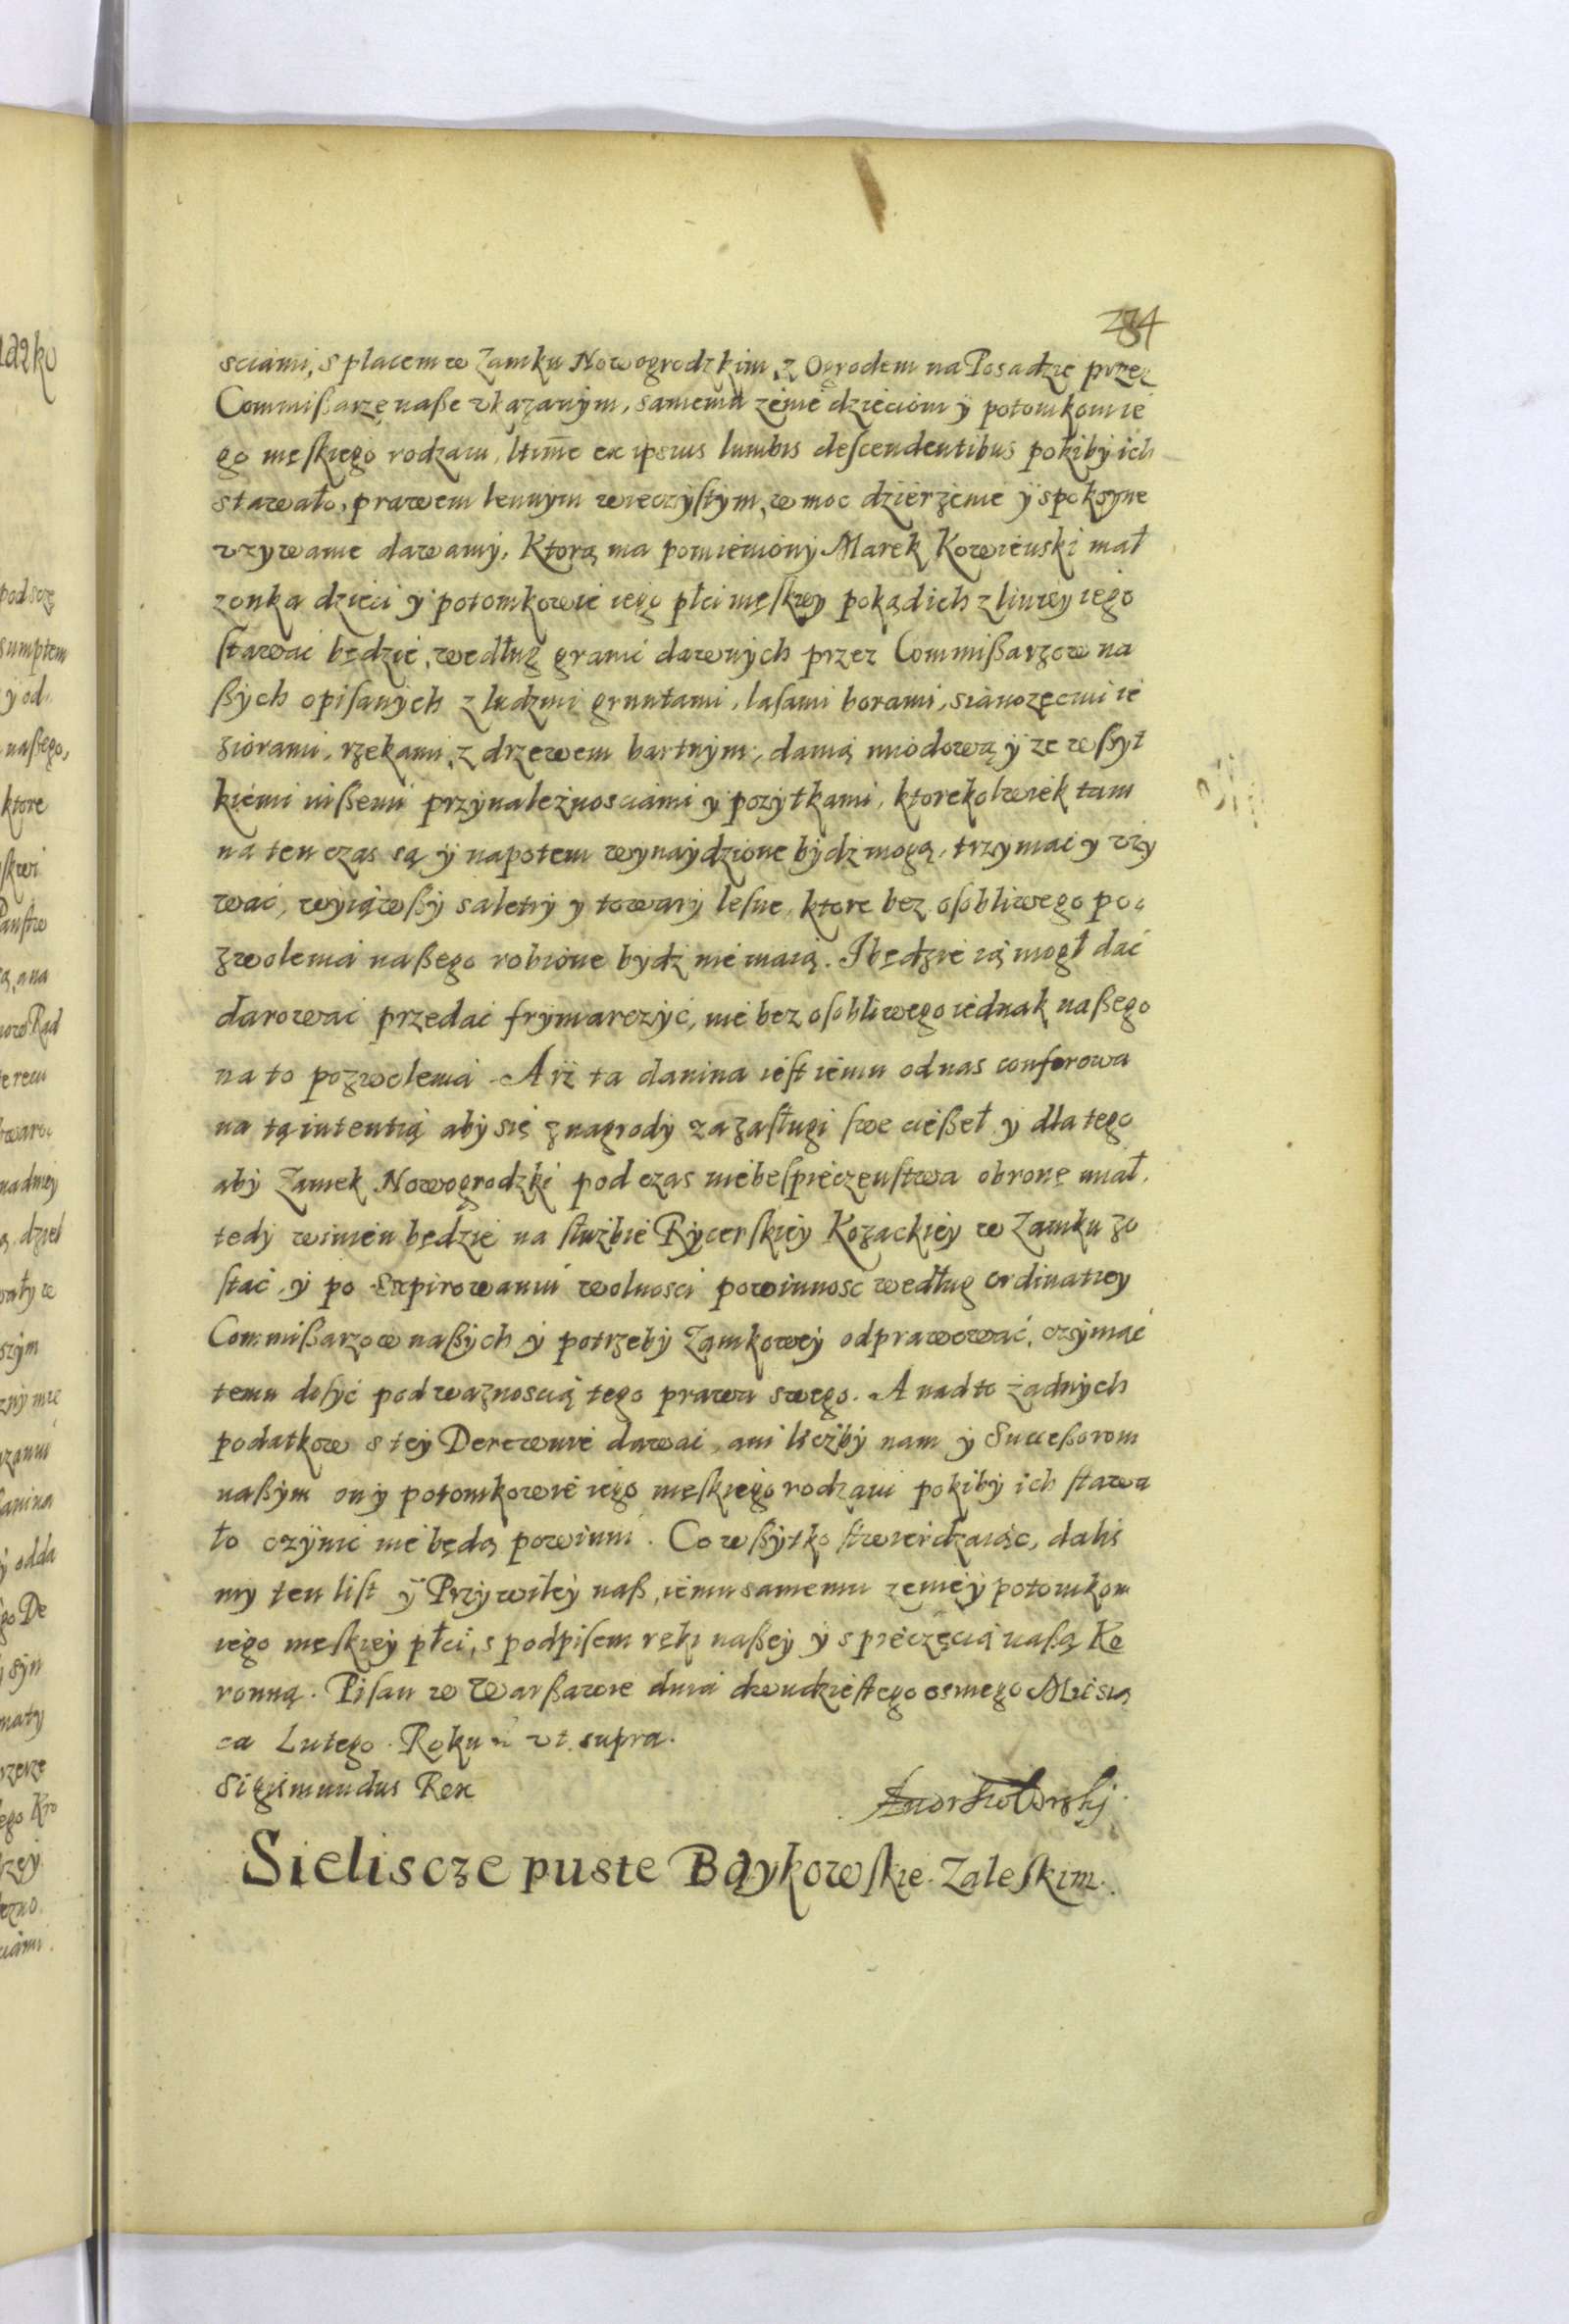 234
sciami, s placem w Zamku Nowogrodzkim, z Ogrodem na Posadzie przez
Commißarze naße vkazanym, samemu żenie dzieciom y potomkom ie
go męskiego rodzaiu, ltime ex ipsius lumbis descendentibus pokiby ich
stawało, prawem lennym wieczystym, w moc dzierżenie y spokoyne
vzywanie dawamy. Ktorą ma pomieniony Marek Kowieński mał
zonka dzieci y potomkowie iego płci męskiey pokąd ich z liniey iego
stawać będzie, według granic dawnych przez Commißarzow na
ßych opisanych z ludzmi gruntami, lasami borami, sianozęcmi ie
ziorami, rzekami, z drzewem bartnym, danią miodową y ze wßyt
kiemi inßemi przynależnosciami y pozytkami, ktorekolwiek tam
na ten czas są y napotem wynaydzione bydz mogą, trzymać y vzy
wać, wyiąwßy saletry y towary lesne, ktore bez osobliwego po
zwolenia naßego robione bydz nie maią. I będzie ią mogł dać
darować przedać frymarczyć, nie bez osobliwego iednak naßego
na to pozwolenia. A iż ta danina iest iemu od nas conferowa
na tą intentią aby się z nagrody za zasługi swe cießeł y dla tego
aby Zamek Nowogrodzki pod czas niebespieczenstwa obronę miał,
tedy winien będzie na służbie Rycerskiey Kozackiey w Zamku zo
stać, y po expirowaniu wolnosci powinnosc według ordinatiey
Commißarzow naßych y potrzeby Zamkowey odprawować, czyniąc
temu dosyć pod waznoscią tego prawa swego. A nad to żadnych
podatkow s tey Derewnie dawać, ani liczby nam y Succeßorom
naßym on y potomkowie iego męskiego rodzaiu pokiby ich stawa
ło czynić nie będą powinni. Co wßytko stwierdzaiąc, dalis
my ten list y Przywiley naß, iemu samemu zenie y potomkom
iego męskiey płci, s podpisem ręki naßey y s pieczęcią naßą Ko
ronną. Pisan w Warßawie dnia dwudziestego osmego Miesią
ca Lutego. Roku vt supra.
Sigismundus Rex
Sieliscze puste Baykowskie. Zaleskim.